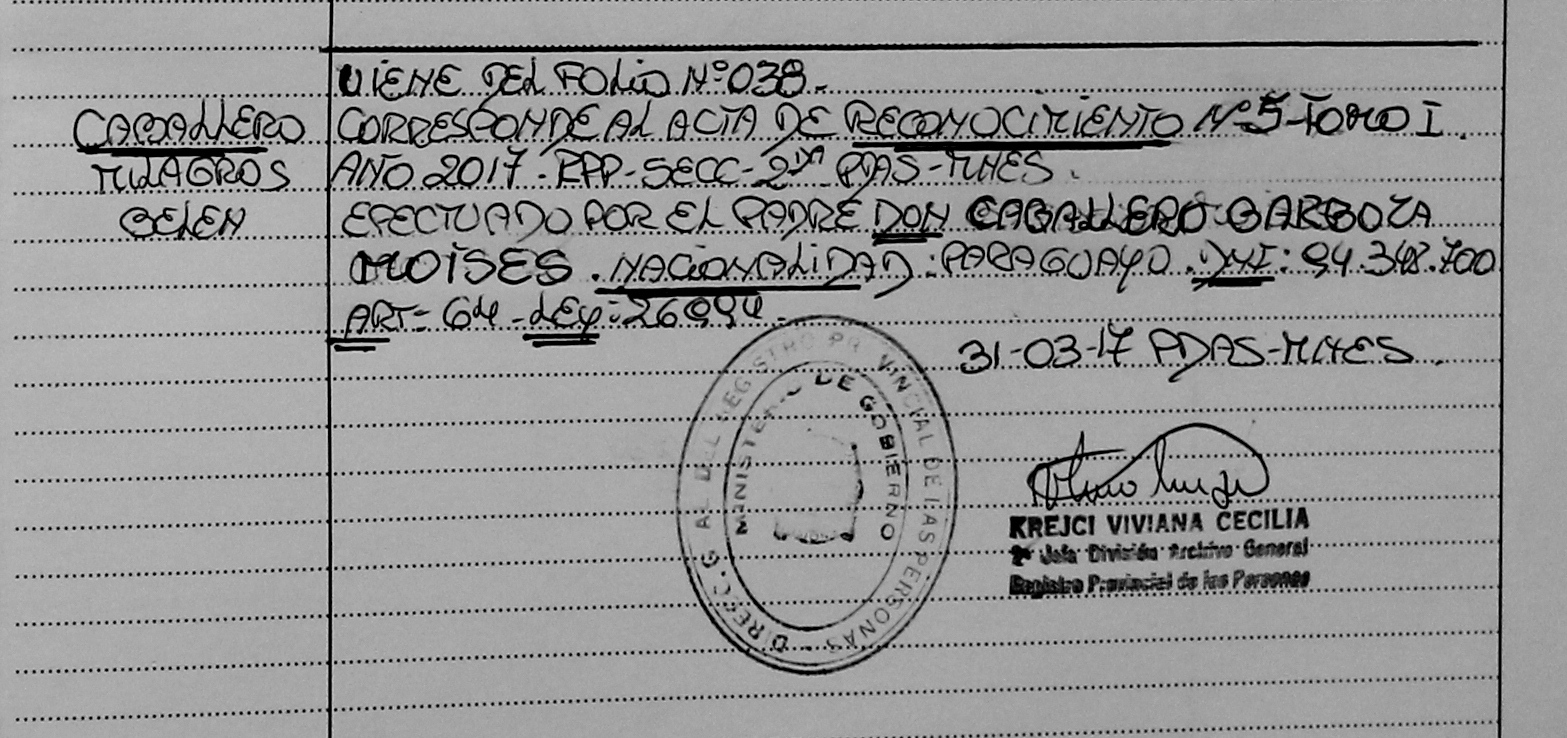 VIENE DEL FOLIO Nº 038.
CABALLERO
MILAGROS
BELEN
CORRESPONDE AL ACTA DE RECONOCIMIENTO Nº 5 - TOMO I.
AÑO 2017 - RPP - SECC - 2DA PDAS - MNES.
EFECTUADO POR EL PADRE DON CABALLERO BARBOZA
MOISES. NACIONALIDAD: PARAGUAYO. DNI: 94.348.700
ART - 64 - LEY: 26994.
31-03-17 PDAS-MNES.
DIRECC. G DEL REGISTRO PR VINCIAL DE LAS PERSONAS
MINISTE DE GOBIERNO
KREJCI VIVIANA CECILIA
2º Jefa División Archivo General
Registro Provincial de las Personas